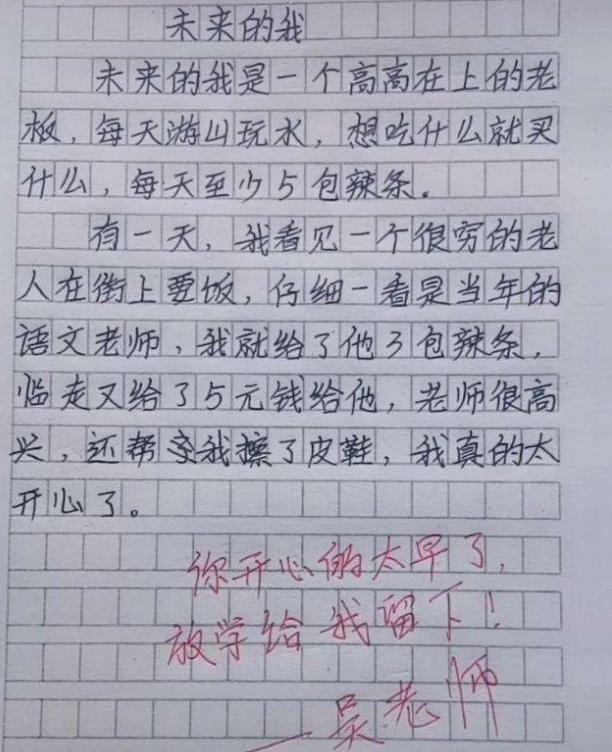 未来的我
未来的我是一个高高在上的老
板，每天游山玩水，想吃什么就买
什么，每天至少5包辣条。
有一天，我看见一个很穷的老
人在街上要饭，仔细一看是当年的
语文老师，我就给了他3包辣条，
临走又给了5元钱给他，老师很高
兴，还帮我擦了皮鞋，我真的太
开心了。
你开心的太早了，
放学给我留下！
——吴老师